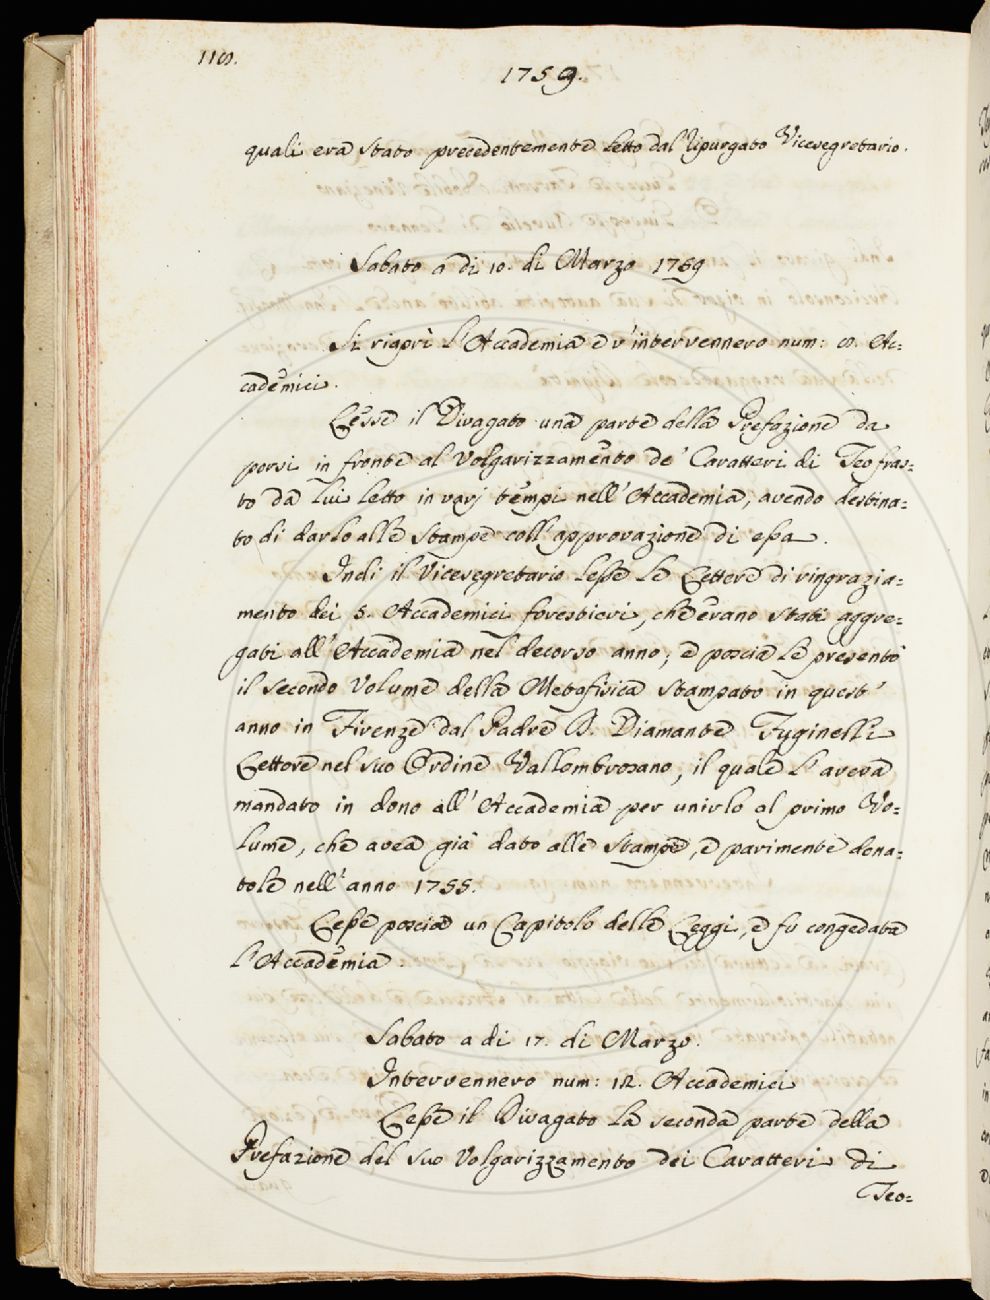 1759.
quali era stato precedentemente letto dal Ripurgato Vicesegretario.
Sabato a di 10. di Marzo 1759
Si riaprì l'Accademia e v'intervennero num: Ac=
cademici.
Lesse il Divagato una parte della Prefazione da
porsi in fronte al Volgarizzamento de' Caratteri di Teofras=
to da lui letto in varj tempi nell'Accademia, avendo destina=
to di darlo alle stampe coll'approvazione di essa.
Indi il Vicesegretario lesse le Lettere di ringrazia=
mento dei 5. Accademici forestieri, che erano stati aggre=
gati all'Accademia nel decorso anno; e poscia le presentò
il secondo Volume della Metafisica stampato in quest'
anno in Firenze dal Padre D. Diamante Fuginelli
Lettore nel suo Ordine Vallombrosano, il quale l'aveva
mandato in dono all'Accademia per unirlo al primo Vo=
lume, che avea già dato alle stampe, e parimente dona=
tole nell'anno 1755.
Lesse poscia un Capitolo delle Leggi, e fu congedata
l'Accademia.
Sabato a di 17. di Marzo.
Intervennero num: 12. Accademici
Lesse il Divagato la seconda parte della
Prefazione del suo Volgarizzamento dei Caratteri di
Teo=